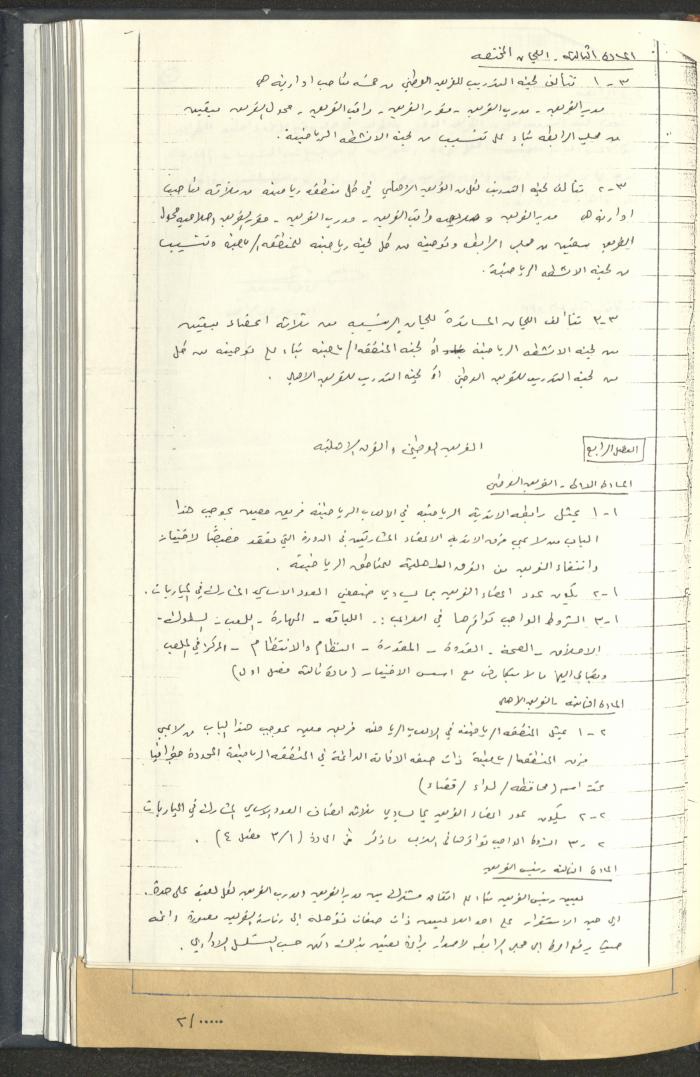 المادة الثالثة - اللجان المختصة
٣-١ تتألف لجنة التدريب للفريق الوطني من خمسة مناصب ادارية هي
مدير الفريق - مدرب الفريق - مقرر الفريق - مراقب الفريق - ممول الفريق يبقيهن
من مجلس الرابطة بناء على تنسيب من لجنة الانشطة الرياضية .
٣-٢ تتألف لجنة التدريب لكل من الفريق الاهلي في كل منطقة رياضية من ثلاثة مناصب
ادارية هي مدير الفريق و مراقب الفريق - مدرب الفريق - مقرر الفريق
الفريق من مجلس الرابطة وتوصية من كل لجنة رياضية للمنطقة / وتنسيب
من لجنة الانشطة الرياضية .
٣-٣ تتألف اللجان المساندة للجان الرئيسية من ثلاثة اعضاء
من لجنة الانشطة الرياضية أو لجنة المنطقة / بناء على توصية من كل
من لجنة التدريب للفريق الوطني أو لجنة التدريب للفريق الاهلي .
الفصل الرابع الفريق الوطني والفرق الاهلية
المادة الاولى - الفريق الوطني
١-١ يمثل رابطة الاندية الرياضية في الالعاب الرياضية فريق معين بموجب هذا
الباب من لاعبي فرق الاندية الاعضاء المشاركين في الدورة التي تعقد خصيصا لاختيار
وانتقاء الفريق من الفرق الاهلية للمناطق الرياضية .
١-٢ يكون عدد اعضاء الفريق بما يساوي ضعفي العدد الاساسي المشارك في المباريات .
١-٣ الشروط الواجب توافرها في اللاعب :. اللياقة - المهارة - اللعب - السلوك -
الاخلاق - الصحة - القدوة - المقدرة - النظام والانتظام - المركز في الملعب
ويضاف اليها ما لا يتعارض مع اسس الاختيار (مادة ثالثة فصل اول)
المادة الثانية - الفريق الاهلي
٢-١ يمثل المنطقة الرياضية في الالعاب الرياضية فريق معين بموجب هذا الباب من لاعبي
فرق المنطقة / ذات صفة الاقامة الدائمة في المنطقة الرياضية المحددة جغرافيا
تحت اسم (محافظة / لواء / قضاء)
٢-٢ سيكون عدد اعضاء الفريق بما يساوي ثلاثة اضعاف العدد الاساسي المشارك في المباريات
٢-٣ الشروط الواجب توافرها في اللاعب ما ذكر في المادة (٣/١ فصل ٤) .
المادة الثالثة رئيس الفريق
يعين رئيس الفريق بناء على اتفاق مشترك بين مدير الفريق ومدرب الفريق لكل لعبة على حدة
الى حين الاستقرار على احد اللاعبين ذات صفات تؤهله الى رئاسة الفريق بصورة دائمة
يرفع الى مجلس الرابطة لاصدار قراره بتعيين بذلك حسب التسلسل الاداري .
٢/.....